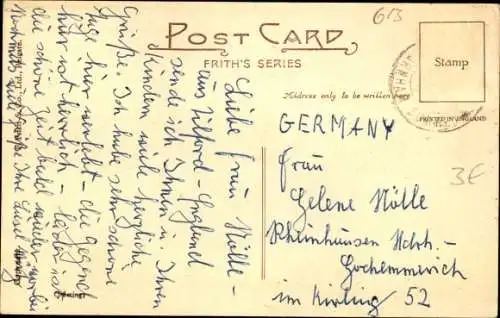 613
POST CARD
FRITH'S SERIES
Address only to be written
Stamp
PRINTED IN ENGLAND
GERMANY
Frau
Helene Nölle
Rheinhausen Ndrh.-
Hochemmerich
im Kirling 52
3E
Liebe Frau Nölle -
aus Tilford - England
sende ich Ihnen u. Ihren
Kindern viele herzliche
Grüße. Ich habe sehr schöne
Tage hier verlebt - die Gegend
hier ist herrlich - leider ist
die schöne Zeit bald wieder vorbei
Nochmals viele Grüße Ihre